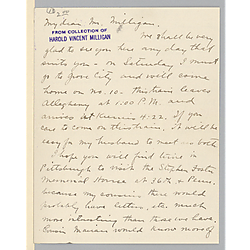 My dear Mr. Milligan.
FROM COLLECTION OF
HAROLD VINCENT MILLIGAN
We shall be very
glad to see you here any day that
suits you - on Saturday, I must
go to Grove City and will come
home on no. 10 - this train leaves
Allegheny at 1:00 P.M. and
arrives at 4:22. If you
care to come on this train, it will be
easy for my husband to meet us both
I hope you will find time in
Pittsburgh to visit the Stephen Foster
Memorial House at 36th & Penn,
because my cousin, there would
probably have letters, etc. much
more interesting than those we have.
Cousin Marian would know more of